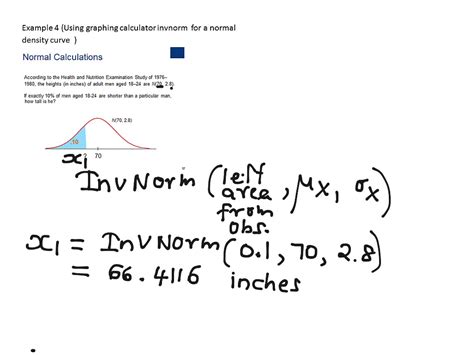 Example 4 (Using graphing calculator invnorm for a normal
density curve )
Normal Calculations
According to the Health and Nutrition Examination Study of 1976–
1980, the heights (in inches) of adult men aged 18–24 are N(70, 2.8).
If exactly 10% of men aged 18-24 are shorter than a particular man,
how tall is he?
N(70, 2.8)
.10
? 70
x₁
InvNorm (left area from obs., μx, σx)
x₁ = InvNorm (0.1, 70, 2.8)
= 66.4116 inches